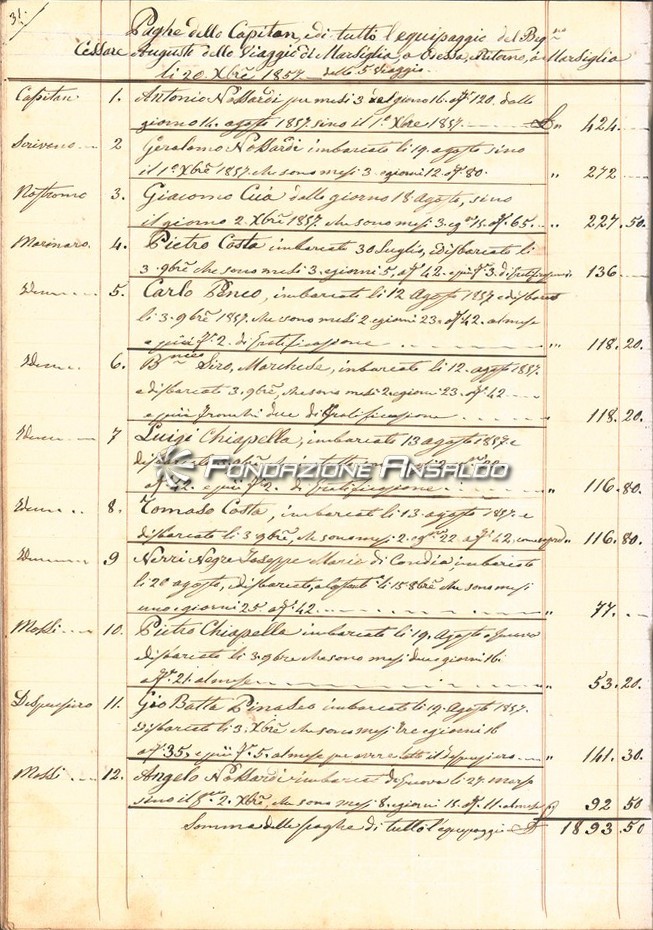 31.
Paghe dello Capitan, e di tutto l'equipaggio del Brig.no
Cesare Augusto dello Viaggio di Marsiglia, a Odessa, Ritorno, a Marsiglia
li 20 Xbrẽ 1857. dallo 5 Viaggio.
Capitan 1. Antonio Nossardi per mesi 3 giorno 16. a fr. 120, dallo
giorno 14. agosto 1857 sino il 1º Xbre 1857 424.
Scriveno 2 Gerolomo Nossardi imbarcato li 19. agosto sino
il 1º Xbrẽ 1857. che sono mesi 3. giorni 12. a fr. 80. " 272
Nostromo 3. Giacomo Cuà dallo giorno 18 agosto, sino
il giorno 2. Xbrẽ 1857. che sono mesi 3. e g. 15. a fr. 65. " 227.50.
Marinaro. 4. Pietro Costa imbarcato 30 Luglio, e disbarcato li
3. 9brẽ che sono mesi 3. e giorni 5, a fr. 42. e più fr. 3. di 136
Idem 5. Carlo Penco, imbarcato li 12 Agosto 1857 e disbarcato
li 3. 9brẽ 1857. che sono mesi 2. e giorni 23. a fr. 42. al mese
e più fr. 2. di Gratificazione " 118.20.
Idem 6. Siro, Marchese, imbarcato li 12. agosto 1857.
e disbarcato 3. 9brẽ, che sono mesi 2. e giorni 23. a fr. 42
e più franchi due di Gratificazione " 118.20
Idem 7 Luigi Chiapella, imbarcato 13 agosto 1857. e
FONDAZIONE ANSALDO
a fr. 42. e più fr. 2. di Gratificazione " 116.80.
Idem 8. Tomaso Costa, imbarcato li 13. agosto 1857. e
disbarcato li 3. 9brẽ, che sono mesi 2. e g. 22 a fr. 42. come sopra " 116.80.
Idem 9 Nerri Negre Joseppe Marie di Candia, imbarcato
li 20 agosto, e disbarcato, li 15 8brẽ che sono mesi
uno e giorni 25. a fr. 42. " 77.
Mossi 10. Pietro Chiapella imbarcato li 19. Agosto a
disbarcato li 3. 9bre che sono mesi due giorni 16.
a fr. 21. al mese " 53.20.
Despensiero 11. Gio Batta imbarcato li 19. Agosto 1857.
Disbarcato li 3. Xbrẽ che sono mesi tre giorni 16
a fr. 35. e più fr. 5. al mese per avere fatto il dispensiero " 141.30.
Mossi 12. Angelo Nossardi imbarcato di Genova li 27. marzo
sino il 2. Xbrẽ, che sono mesi 8. e giorni 15. a fr. 11. al mese 92 50
Somma delle paghe di tutto l'equipaggio 1893.50